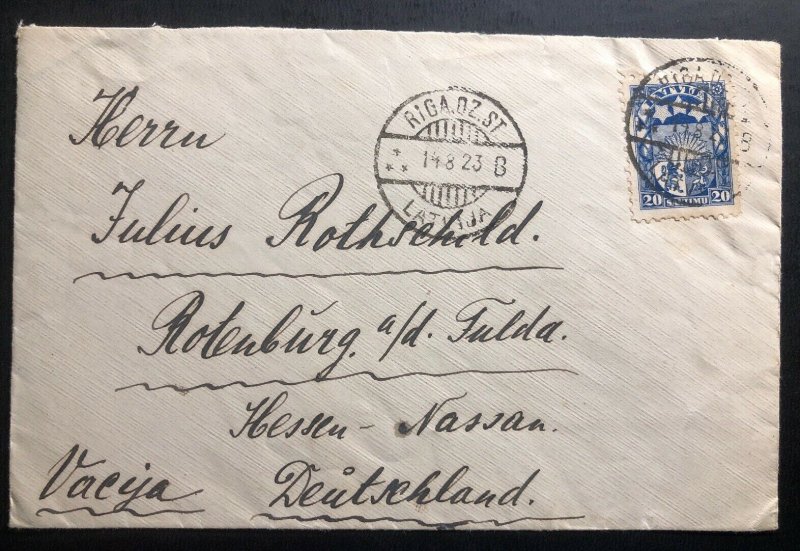 RIGA.DZ.ST.
14 8 23 B
LATVIJA
RIGA.DZ
LATVIJA
20 SANTIMU 20
Herrn
Julius Rothschild.
Rotenburg. a/d. Fulda.
Hessen-Nassau.
Vacija Deutschland.